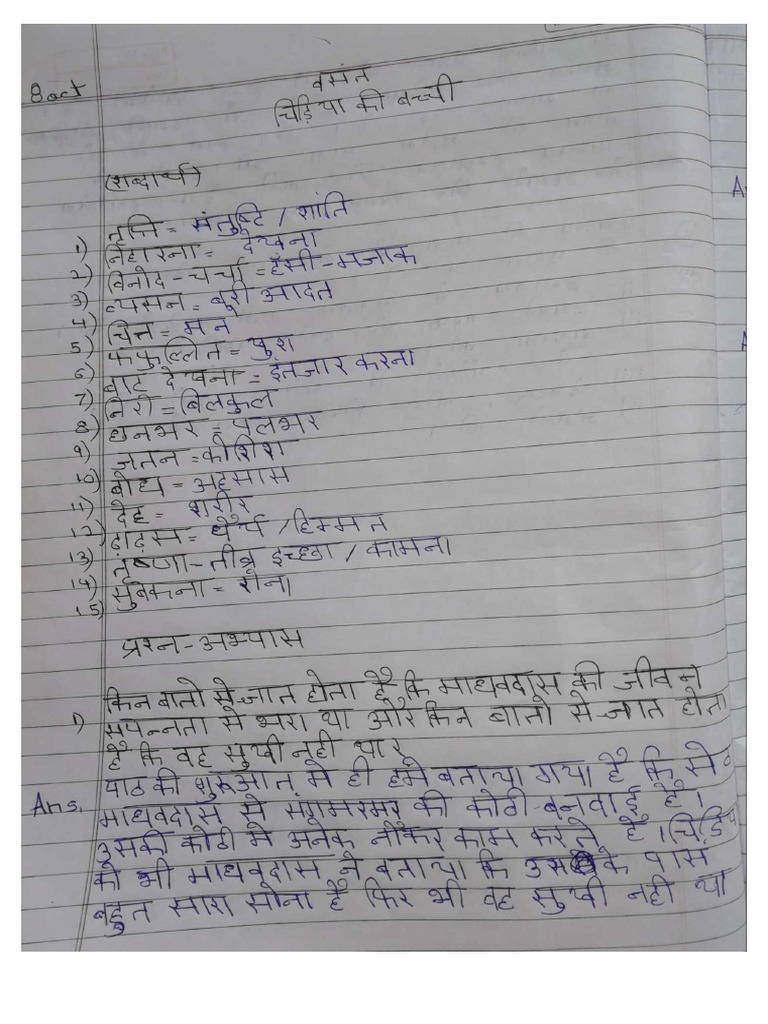 8 oct
वसंत
चिड़िया की बच्ची
(शब्दार्थ)
1) तृप्ति = संतुष्टि / शांति
2) निहारना = देखना
3) विनोद-चर्चा = हँसी-मजाक
4) व्यसन = बुरी आदत
5) चित्त = मन
6) फफुल्लित = खुश
7) बाट देखना = इंतजार करना
8) निरी = बिलकुल
9) छनभर = पलभर
10) जतन = कोशिश
11) बोध = अहसास
12) देह = शरीर
13) ढ़ाढ़स = धैर्य / हिम्मत
14) तृष्णा - तीव्र इच्छा / कामना
15) सुबकना = रोना
प्रश्न-अभ्यास
1) किन बातो से ज्ञात होता है कि माधवदास की जीवन
संपन्नता से भरा था और किन बातो से ज्ञात होता
है कि वह सुखी नही था?
Ans. पाठ की शुरूआत मे ही हमे बताया गया है कि सेठ
माधवदास ने संगमरमर की कोठी बनवाई है।
उसकी कोठी मे अनेक नौकर काम करते है। चिड़िया
को भी माधवदास ने बताया कि उसके पास
बहुत सारा सोना है फिर भी वह सुखी नही था